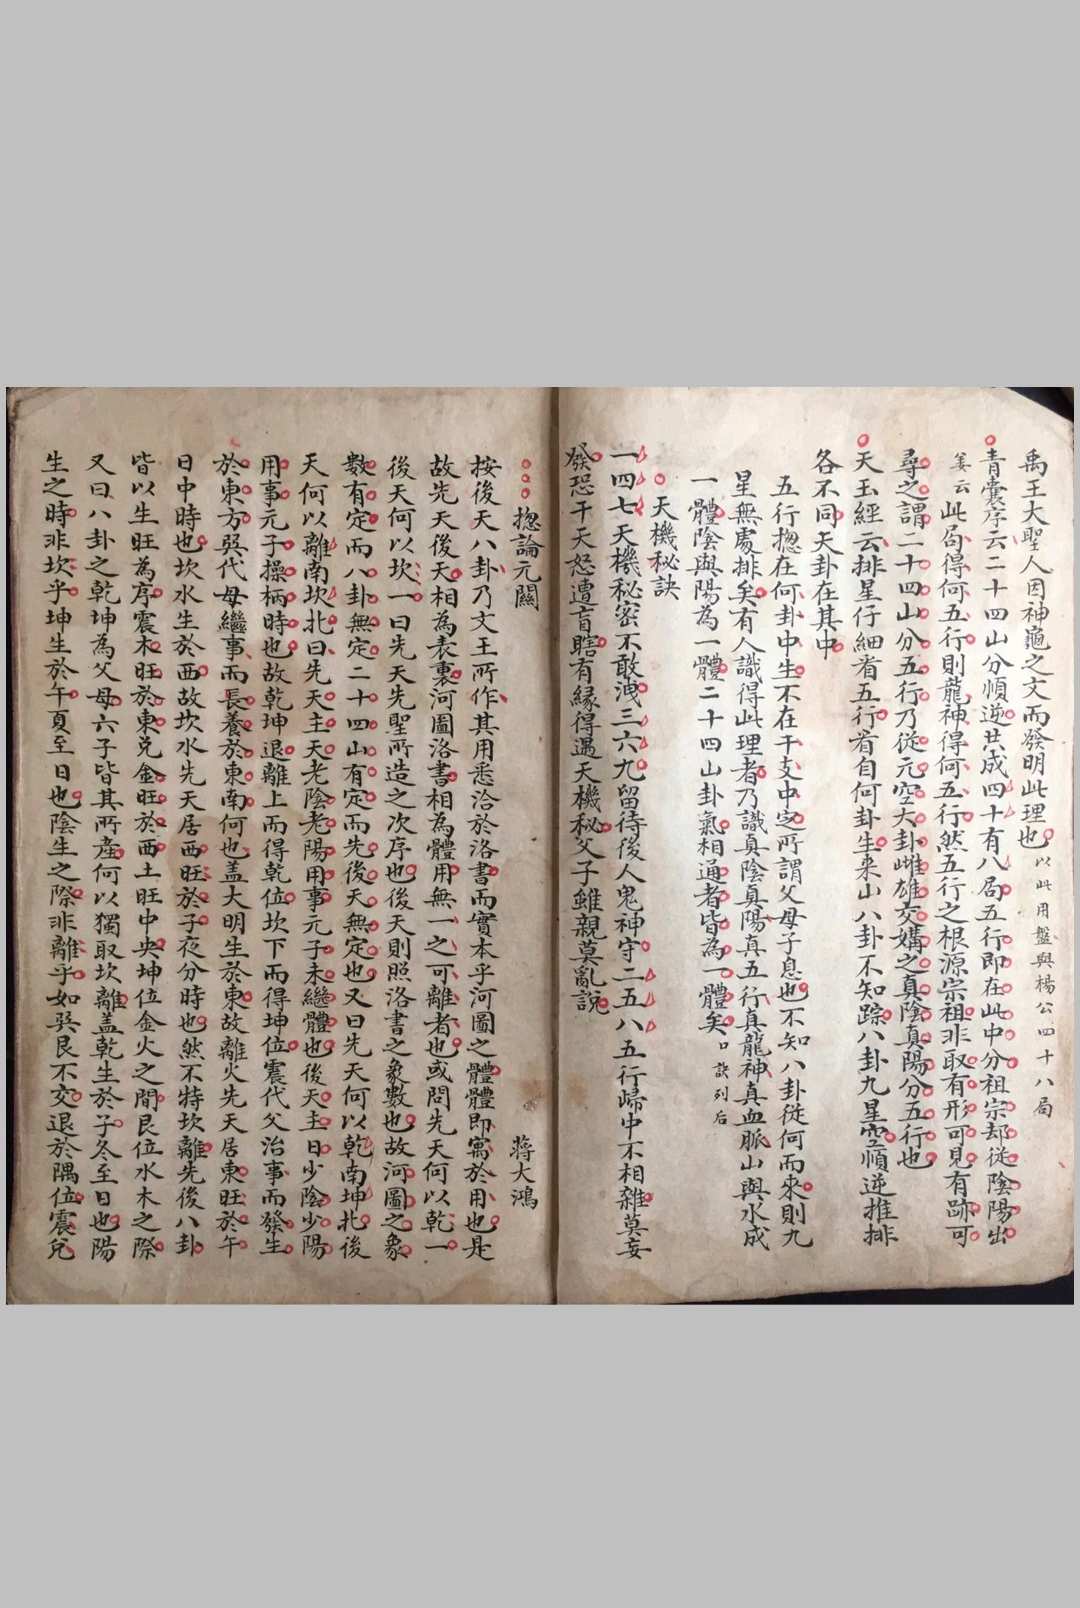 禹王大聖人因神龜之文而發明此理也以此用盤與楊公四十八局
青囊序云二十四山分順逆共成四十有八局五行即在此中分祖宗却從陰陽出
姜云此局得何五行則龍神得何五行然五行之根源宗祖非取有形可見有跡可
尋之謂二十四山分五行乃從元空大卦雌雄交媾之真陰真陽分五行也
天玉經云排星仔細看五行看自何卦生來山八卦不知踪八卦九星空順逆推排
各不同天卦在其中
五行揔在何卦中生不在干支中定所謂父母子息也不知八卦從何而來則九
星無處排矣有人識得此理者乃識真陰真陽真五行真龍神真血脈山與水成
一體陰與陽為一體二十四山卦氣相通者皆為一體矣口訣列后
天機秘訣
一四七天機秘密不敢洩三六九留待後人鬼神守二五八五行歸中不相雜莫妄
發恐干天怒遭盲瞎有緣得遇天機秘父子雖親莫亂說
揔論元關 蔣大鴻
按後天八卦乃文王所作其用悉洽於洛書而實本乎河圖之體體即寓於用也是
故先天後天相為表裏河圖洛書相為體用無一之可離者也或問先天何以乾一
後天何以坎一曰先天先聖所造之次序也後天則照洛書之象數也故河圖之象
數有定而八卦無定二十四山有定而先後天無定也又曰先天何以乾南坤北後
天何以離南坎北曰先天主天老陰老陽用事元子未繼體也後天主日少陰少陽
用事元子操柄時也故乾坤退離上而得乾位坎下而得坤位震代父治事而發生
於東方巽代母繼事而長養於東南何也盖大明生於東故離火先天居東旺於午
日中時也坎水生於西故坎水先天居西旺於子夜分時也然不特坎離先後八卦
皆以生旺為序震木旺於東兌金旺於西土旺中央坤位金火之間艮位水木之際
又曰八卦之乾坤為父母六子皆其所產何以獨取坎離盖乾生於子冬至日也陽
生之時非坎乎坤生於午夏至日也陰生之際非離乎如巽艮不交退於隅位震兌